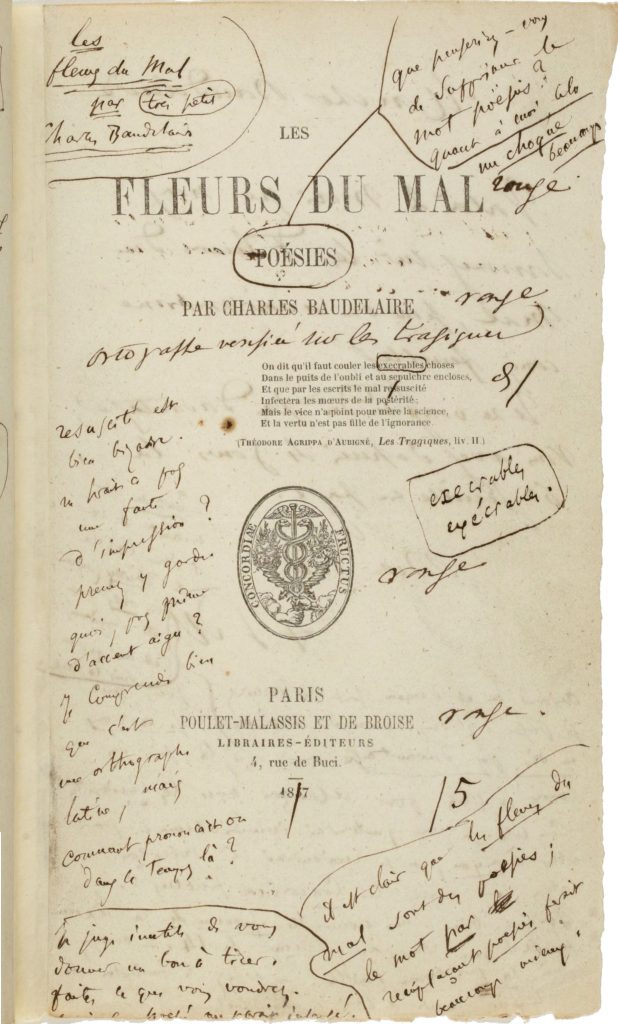 les
fleurs du Mal
par très petit
Charles Baudelaire
que penseriez-vous
de supprimer le
mot poësies?
quant à moi cela
me choque
beaucoup
LES
FLEURS DU MAL
rouge.
POÉSIES
PAR CHARLES BAUDELAIRE
rouge
ortografe vérifié sur les tragiques
On dit qu'il faut couler les execrables choses
Dans le puits de l'oubli et au sepulchre encloses,
Et que par les escrits le mal resuscité
Infectera les mœurs de la postérité;
Mais le vice n'a point pour mère la science,
Et la vertu n'est pas fille de l'ignorance.
(THÉODORE AGRIPPA D'AUBIGNÉ, Les Tragiques, liv. II)
resuscité est
bien bizarre.
ne serait-ce pas
une faute
d'impression?
prenez y garde.
quoi, pas même
d'accent aigu?
Je comprends bien
que c'est
une orthographe
latine, mais
comment prononçait-on
dans ce temps là?
execrables
exécrables.
CONCORDIÆ FRUCTUS
rouge
PARIS
POULET-MALASSIS ET DE BROISE
rouge.
LIBRAIRES-ÉDITEURS
4, rue de Buci.
1857
/5
il est clair que les fleurs du
mal sont des poësies;
le mot par
remplaçant poësies ferait
beaucoup mieux.
Je juge inutile de vous
donner un bon à tirer.
faites ce que vous voudrez.